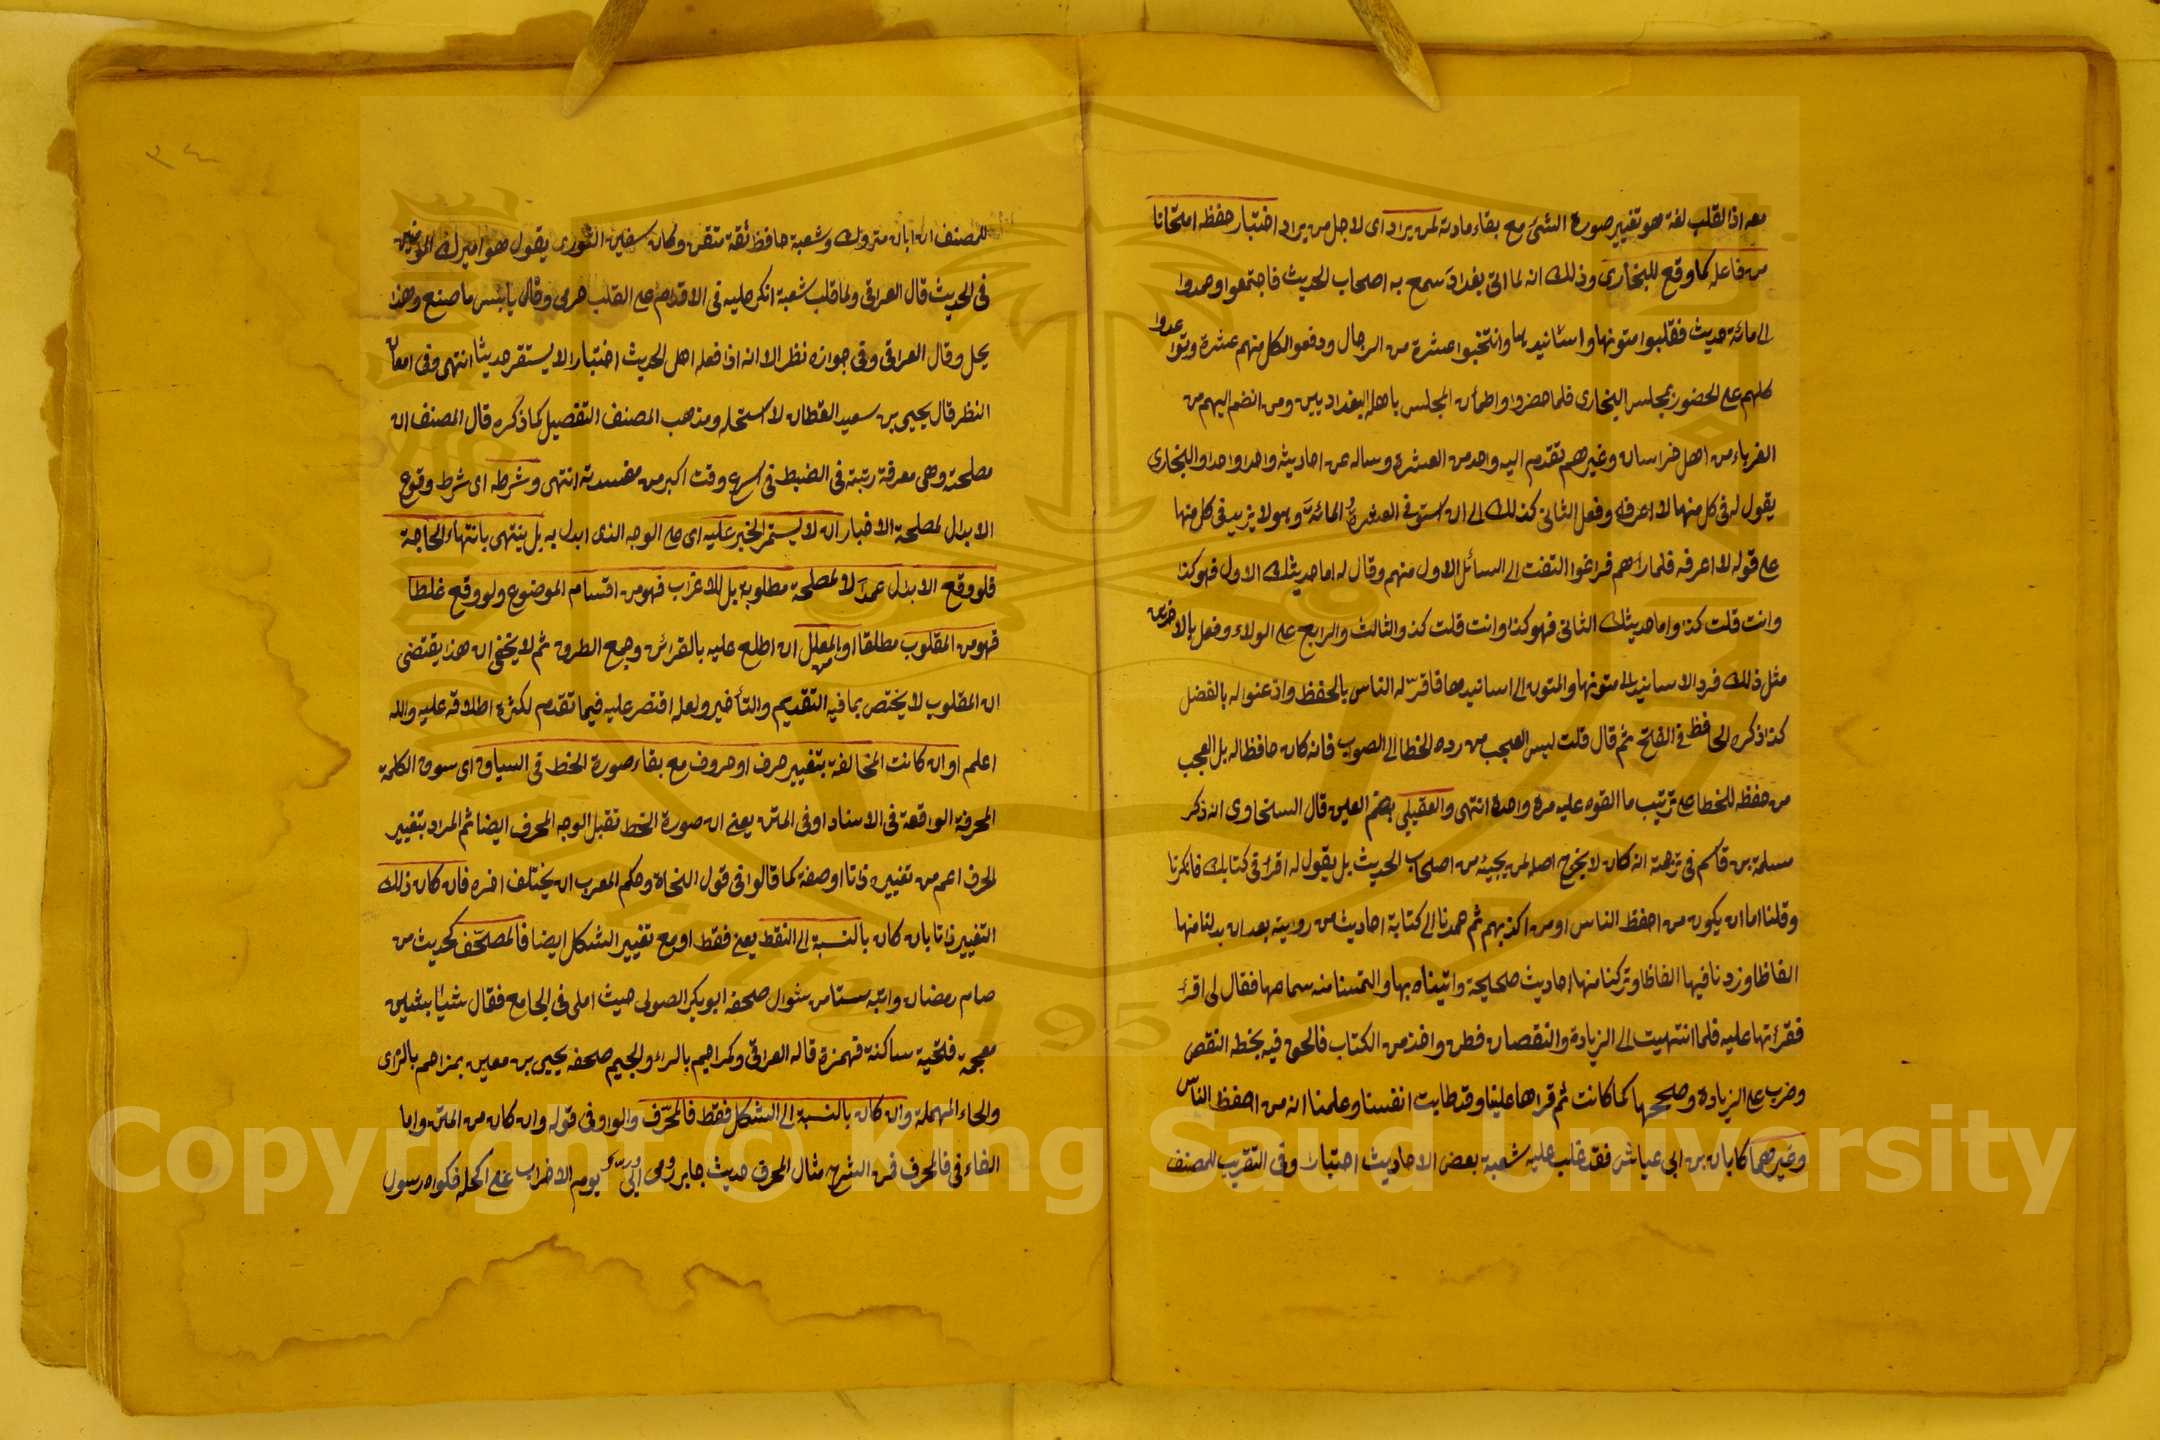 معه اذ القلب لغة هو تغيير صورة الشئ مع بقاء مادته لمن يراد اى لاجل من يراد اختبار حفظه امتحانا
من فاعله كما وقع للبخارى وذلك انه لما اتى بغداد سمع به اصحاب الحديث فاجتمعوا وعمدوا
الى مائة حديث فقلبوا متونها واسانيدها وانتخبوا عشرة من الرجال ودفعوا لكل منهم عشرة وتواعدوا
كلهم على الحضور بمجلس البخارى فلما حضروا واطمأن المجلس باهله البغداديين ومن انضم اليهم من
الغرباء من اهل خراسان وغيرهم تقدم اليه واحد من العشرة وساله عن احاديثه واحدا واحدا والبخارى
يقول له فى كل منها لا اعرفه وفعل الثانى كذلك الى ان استوفى العشرة المائة وهو لا يزيد فى كل منها
على قوله لا اعرفه فلما رآهم فرغوا التفت الى السائل الاول منهم وقال له اما حديثك الاول فهو كذا
وانت قلت كذا واما حديثك الثانى فهو كذا وانت قلت كذا والثالث والرابع على الولاء وفعل بالاخرين
مثل ذلك فرد الاسانيد الى متونها والمتون الى اسانيدها فاقر له الناس بالحفظ واذعنوا له بالفضل
كذا ذكره الحافظ فى الفتح ثم قال قلت ليس العجب من رده الخطا الى الصواب فانه كان حافظا له بل العجب
من حفظه للخطا على ترتيب ما القوه عليه مرة واحدة انتهى والعقيلى بضم العين قال السخاوى انه ذكر
مسلمة بن قاسم فى ترجمته انه كان لا يخرج اصله لمن يجيئه من اصحاب الحديث بل يقول له اقرا فى كتابك فانكرنا
وقلنا اما ان يكون من احفظ الناس او من اكذبهم ثم عمدنا الى كتابة احاديث من روايته بعد ان بدلنا منها
الفاظا وزدنا فيها الفاظا وتركنا منها احاديث صحيحة واتيناه بها والتمسنا منه سماعها فقال لى اقرأ
فقرأتها عليه فلما انتهيت الى الزيادة والنقصان فطن واخذ من الكتاب فالحق فيه بخطه النقص
وضرب على الزيادة وصححها كما كانت ثم قراها علينا وقد طابت انفسنا وعلمنا انه من احفظ الناس
وغيرهما كابان بن ابى عياش فقد قلب عليه شعبة بعض الاحاديث اختبارا وفى التقريب للمصنف
للمصنف ان ابان متروك وشعبة حافظ ثقة متقن وكان سفين الثورى يقول هو امير المؤمنين
فى الحديث قال العراقى ولما قلب شعبة انكر عليه فى الاقدام على القلب حرمى وقال يا بئس ما صنع وهذا
يحل وقال العراقى وفى جوازه نظر الا انه اذا فعله اهل الحديث اختبارا لا يستقر حديثا انتهى وفى
النظر قال يحيى بن سعيد القطان لا استحله ومذهب المصنف التفصيل كما ذكره قال المصنف ان
مصلحته وهى معرفة رتبته فى الضبط فى اسرع وقت اكبر من مفسدته انتهى وشرطه اى شرط وقوع
الابدال لمصلحة الاختبار ان لا يستمر الخبر عليه اى على الوجه الذى ابدل به بل ينتهى بانتهاء الحاجة
فلو وقع الابدال عمدا لا لمصلحة مطلوبة بل للاغراب فهو من اقسام الموضوع ولو وقع غلطا
فهو من المقلوب مطلقا او من المعلل ان اطلع عليه بالقرائن وجمع الطرق ثم لا يخفى ان هذا يقتضى
ان المقلوب لا يختص بما فيه التقديم والتأخير ولعله اقتصر عليه فيما تقدم لكثرة اطلاقه عليه والله
اعلم او ان كانت المخالفة بتغيير حرف او حروف مع بقاء صورة الخط فى السياق اى سوق الكلمة
المحرفة الواقعة فى الاسناد او فى المتن يعنى ان صورة الخط تقبل الوجه المحرف ايضا ثم المراد بتغيير
الحرف اعم من تغييره ذاتا او صفة كما قالوا فى قول النحاة وحكم المعرب ان يختلف اخره فان كان ذلك
التغيير ذاتا بان كان بالنسبة الى النقط يعنى فقط او مع تغيير الشكل ايضا فالمصحف كحديث من
صام رمضان واتبه ستا من شوال صحفه ابو بكر الصولى حيث املى فى الجامع فقال شيئا بشين
معجمة فتحتية ساكنة فهمزة قاله العراقى وكمراجم بالراء والجيم صحفه يحيى بن معين بمزاحم بالزاى
والحاء المهملة وان كان بالنسبة الى الشكل فقط فالمحرف والواو فى قوله وان كان من المتن واما
الفاء فى فالمحرف من الشرح مثال المحرف حديث جابر رمى ابى يوم الاحزاب على اكحله فكواه رسول
٣٤
Copyright © King Saud University
1957